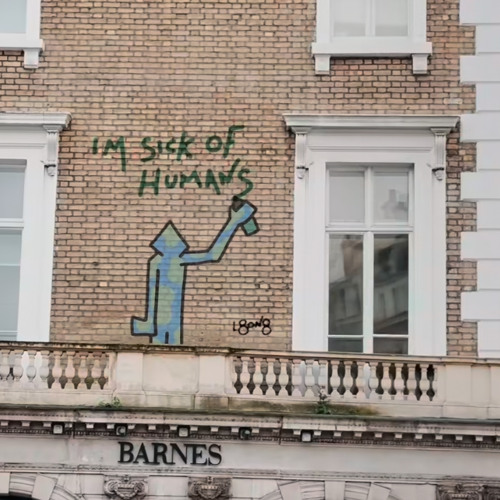 IM SICK OF
HUMANS
L8ON8
BARNES